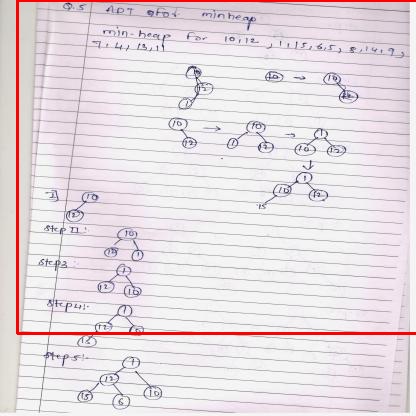 Q.5 ADT for minheap
min-heap for 10,12, 1,15,6,5,8,14,9,
7,4,13,11
10
12
1
10 → 10
12
10 → 10 → 1
12 1 12 10 12
1
10 12
15
I] 10
12
Step II:- 10
12 1
Step3 1
12 10
Step4:- 1
12
15
Step5:-
12 10
15 6